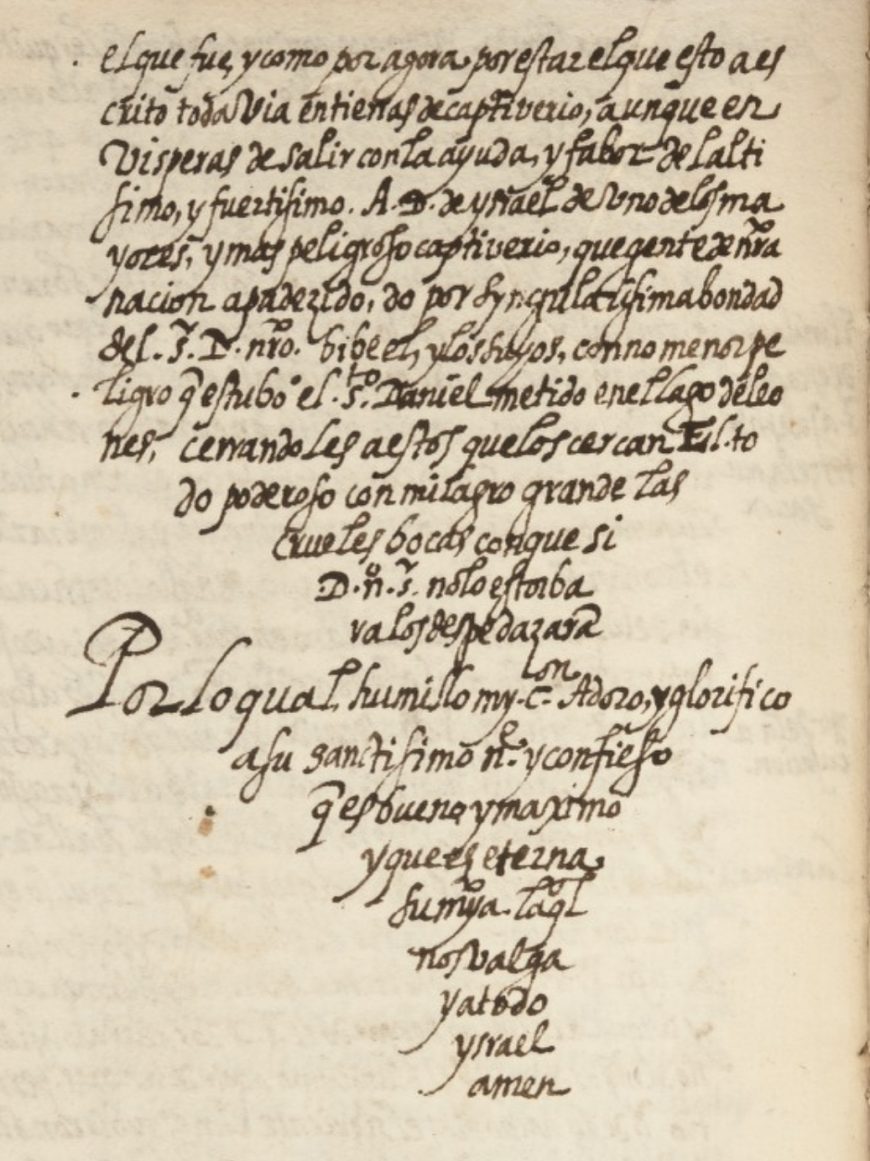 el que fue, y como por agora por estar el que esto a es
crito toda Via en tierras de captiverio, aunque en
Visperas de salir con la ayuda, y fabor del alti
simo, y fuertisimo. A. D. de ysrael de Uno de los ma
yores, y mas peligroso captiverio, que gente de nr̃a
nacion a padezido, do por syngularisima bondad
del. S. D. nr̃o. bibe el, y los suyos, con no menor pe
ligro q̃ estubo el. S.to Daniel metido en el lago de leo
nes, cerrandoles a estos que los cercan El. to
do poderoso con milagro grande las
crueles bocas con que si
D. n.o S. no lo estorba
va los despedazarã
Por lo qual, humillo my. C.on Adoro, y glorifico
a su sanctisimo n.e y confieso
q̃ es bueno, y maximo
y que es eterna
su mỹa. la ql
nos Valga
y a todo
ysrael
amen